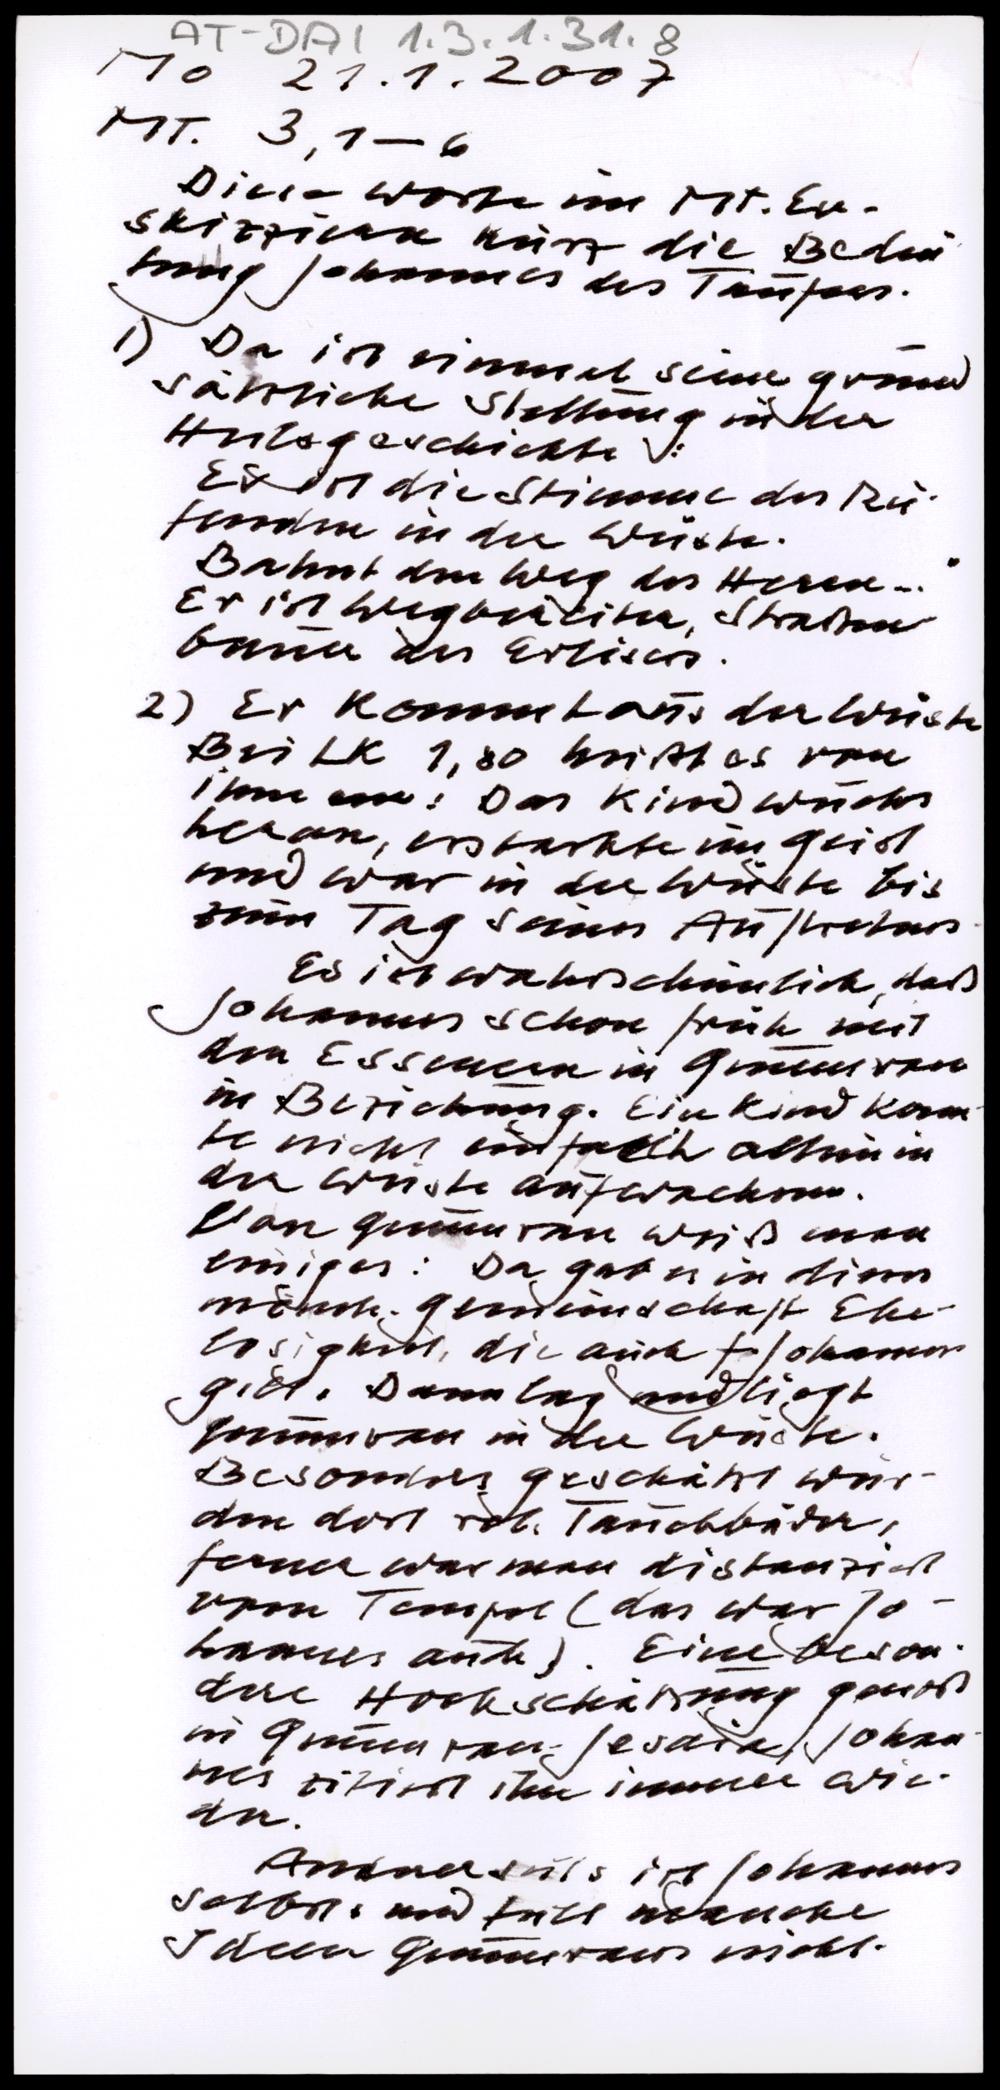 AT-DAI 1.3.1.31.8
Mo 21.1.2007
Mt. 3,1-6
Diese Worte im Mt. Ev.
skizzieren kurz die Bedeu
tung Johannes des Taufers.
1) Da ist einmal seine grund
sätzliche Stellung in der
Heilsgeschichte:
Er ist die Stimme des Ru-
fenden in der Wüste.
Bahnt den Weg des Herrn..."
Er ist Wegbereiter, Straßen
bauer des Erlösers.
2) Er kommt aus der Wüste
Bei LK 1,80 heißt es von
ihm: Das Kind wuchs
heran, erstarkte im Geist
und war in der Wüste bis
zum Tag seines Auftretens.
Es ist wahrscheinlich, daß
Johannes schon früh mit
den Essenern in Qumran
in Beziehung. Ein Kind konn-
te nicht einfach allein in
der Wüste aufwachsen.
Von Qumran weiß man
einiges: Da gab es in dieser
mönch. Gemeinschaft Ehe-
losigkeit, die auch f. Johannes
gilt. Dann lag und liegt
Qumran in der Wüste.
Besonders geschätzt wur-
den dort rel. Tauchbäder,
ferner war man distanziert
vom Tempel (das war Jo-
hannes auch). Eine beson-
dere Hochschätzung genoß
in Qumran Jesaia, Johan-
nes zitiert ihn immer wie-
der.
Andererseits ist Johannes
selbst. und teilt manche
Ideen Qumrans nicht.